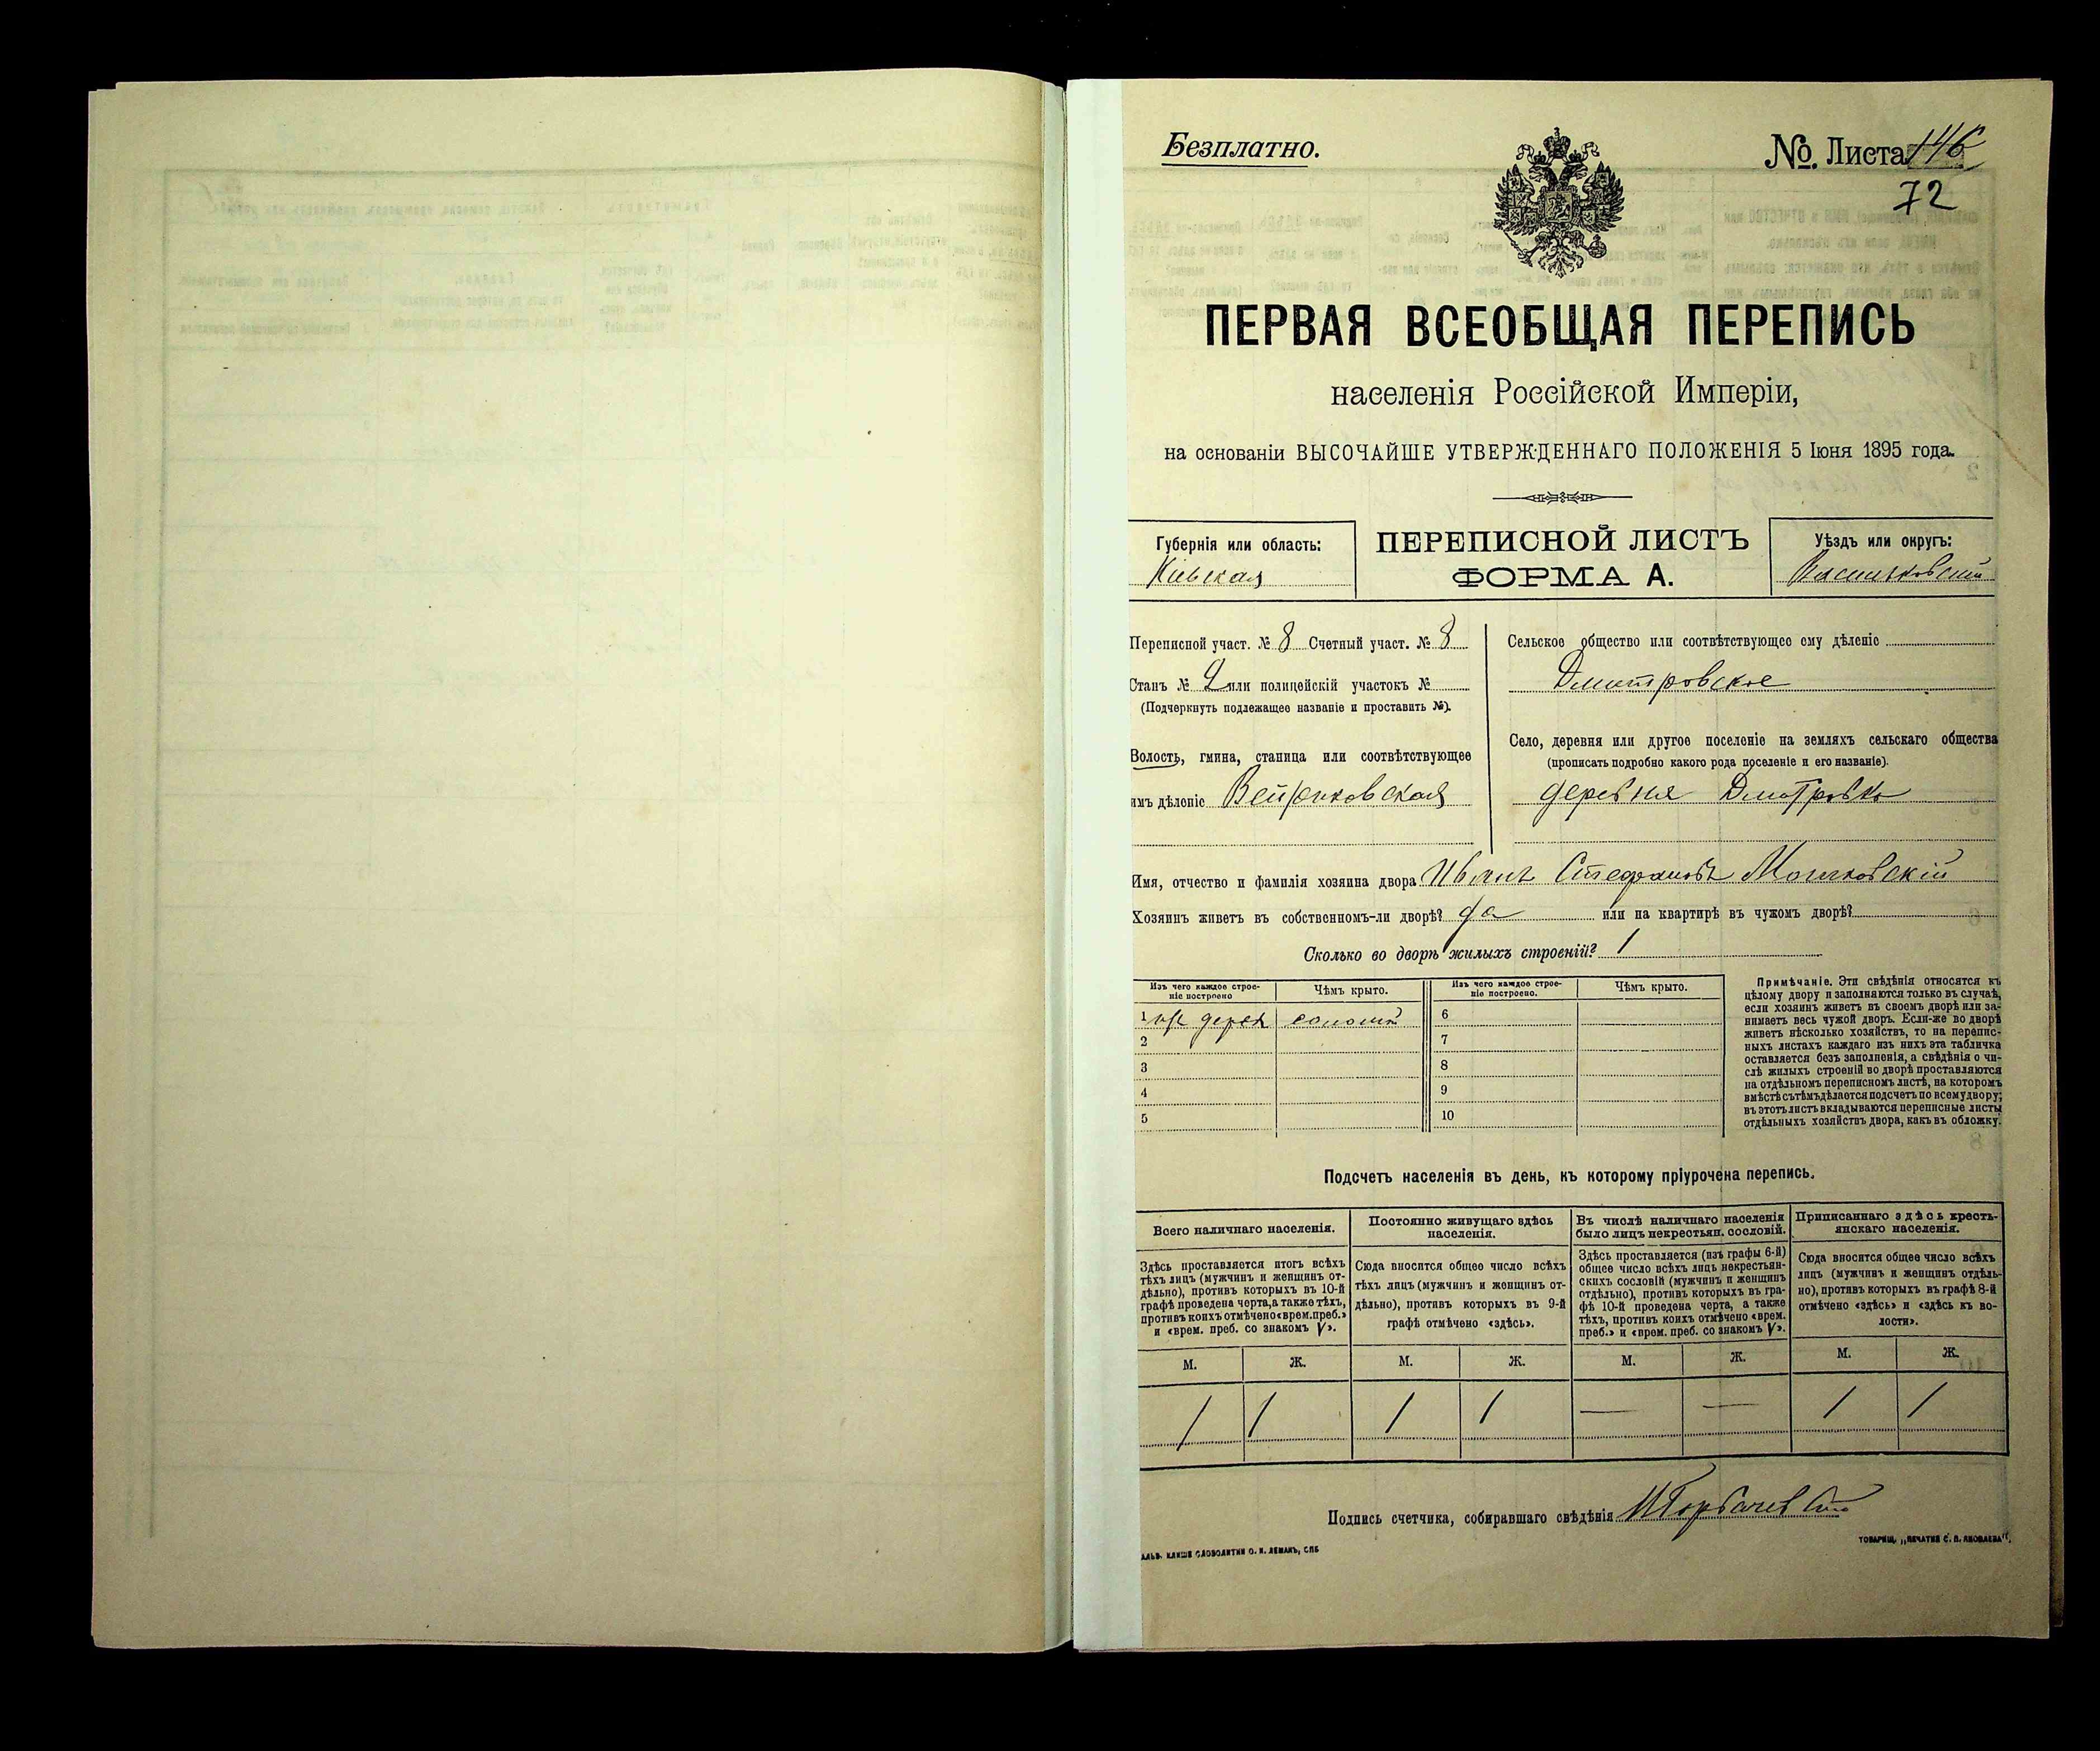 Безплатно.
№ Листа 146
72
ПЕРВАЯ ВСЕОБЩАЯ ПЕРЕПИСЬ
населенія Россійской Имперіи,
на основаніи ВЫСОЧАЙШЕ УТВЕРЖДЕННАГО ПОЛОЖЕНІЯ 5 Іюня 1895 года.
Губернія или область:
Кіевская
ПЕРЕПИСНОЙ ЛИСТЪ
ФОРМА А.
Уѣздъ или округъ:
Васильковскій
Переписной участ. № 8 Счетный участ. № 8
Станъ № 2 или полицейскій участокъ №
(Подчеркнуть подлежащее названіе и проставить №).
Волость, гмина, станица или соотвѣтствующее
имъ дѣленіе
Сельское общество или соотвѣтствующее ему дѣленіе
Дмитровское
Село, деревня или другое поселеніе на земляхъ сельскаго общества
(прописать подробно какого рода поселеніе и его названіе).
деревня Дмитровка
Имя, отчество и фамилія хозяина двора Иванъ Стефановъ
Хозяинъ живетъ въ собственномъ-ли дворѣ? да или на квартирѣ въ чужомъ дворѣ?
Сколько во дворѣ жилыхъ строеній? 1
Изъ чего каждое строе-
ніе построено
Чѣмъ крыто.
Изъ чего каждое строе-
ніе построено.
Чѣмъ крыто.
1 изъ дерев соломой
2
3
4
5
6
7
8
9
10
Примѣчаніе. Эти свѣдѣнія относятся къ
цѣлому двору и заполняются только въ случаѣ,
если хозяинъ живетъ въ своемъ дворѣ или за-
нимаетъ весь чужой дворъ. Если-же во дворѣ
живетъ нѣсколько хозяйствъ, то на перепис-
ныхъ листахъ каждаго изъ нихъ эта табличка
оставляется безъ заполненія, а свѣдѣнія о чи-
слѣ жилыхъ строеній во дворѣ проставляются
на отдѣльномъ переписномъ листѣ, на которомъ
вмѣстѣ съ тѣмъ дѣлается подсчетъ по всему двору;
въ этотъ листъ вкладываются переписные листы
отдѣльныхъ хозяйствъ двора, какъ въ обложку.
Подсчетъ населенія въ день, къ которому пріурочена перепись.
Всего наличнаго населенія.
Здѣсь проставляется итогъ всѣхъ
тѣхъ лицъ (мужчинъ и женщинъ от-
дѣльно), противъ которыхъ въ 10-й
графѣ проведена черта, а также тѣхъ,
противъ коихъ отмѣчено «врем. преб.»
и «врем. преб. со знакомъ V».
Постоянно живущаго здѣсь
населенія.
Сюда вносится общее число всѣхъ
тѣхъ лицъ (мужчинъ и женщинъ от-
дѣльно), противъ которыхъ въ 9-й
графѣ отмѣчено «здѣсь».
Въ числѣ наличнаго населенія
было лицъ некрестьян. сословій.
Здѣсь проставляется (изъ графы 6-й)
общее число всѣхъ лицъ некрестьян-
скихъ сословій (мужчинъ и женщинъ
отдѣльно), противъ которыхъ въ гра-
фѣ 10-й проведена черта, а также
тѣхъ, противъ коихъ отмѣчено «врем.
преб.» и «врем. преб. со знакомъ V».
Приписаннаго здѣсь кресть-
янскаго населенія.
Сюда вносится общее число всѣхъ
лицъ (мужчинъ и женщинъ отдѣль-
но), противъ которыхъ въ графѣ 8-й
отмѣчено «здѣсь» и «здѣсь въ во-
лости».
М. Ж. М. Ж. М. Ж. М. Ж.
1 1 1 1 — — 1 1
Подпись счетчика, собиравшаго свѣдѣнія
ГАЛЬВ. КЛИШЕ СЛОВОЛИТНИ О. И. ЛЕМАНЪ, СПБ
ТОВАРИЩ. „ПЕЧАТНЯ С. П. ЯКОВЛЕВА“.